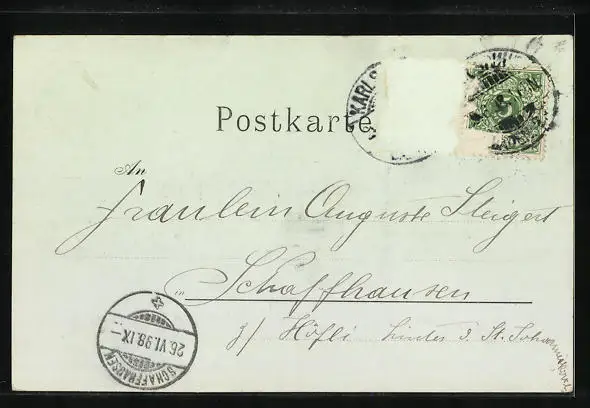 KARLS
Postkarte
An
Fräulein Auguste Steigert
in Schaffhausen
z/ Höfli hinter d. St. Johann
SCHAFFHAUSEN
26.VI.98.IX